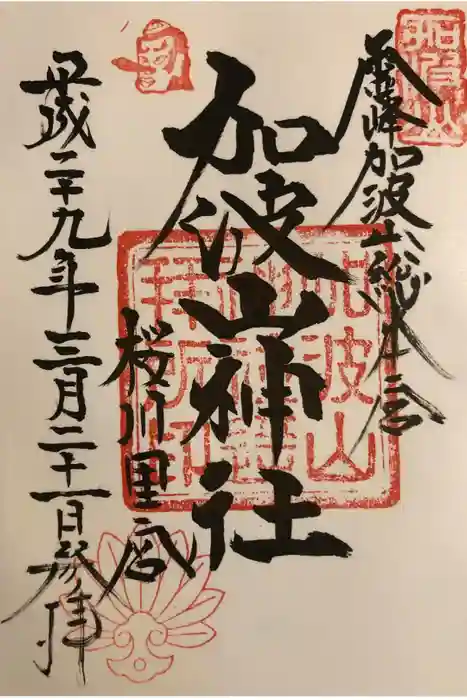 加波山
霊峰加波山総本宮
加波山神社
桜川里宮
平成二十九年三月二十一日参拝
加波山
拝所印